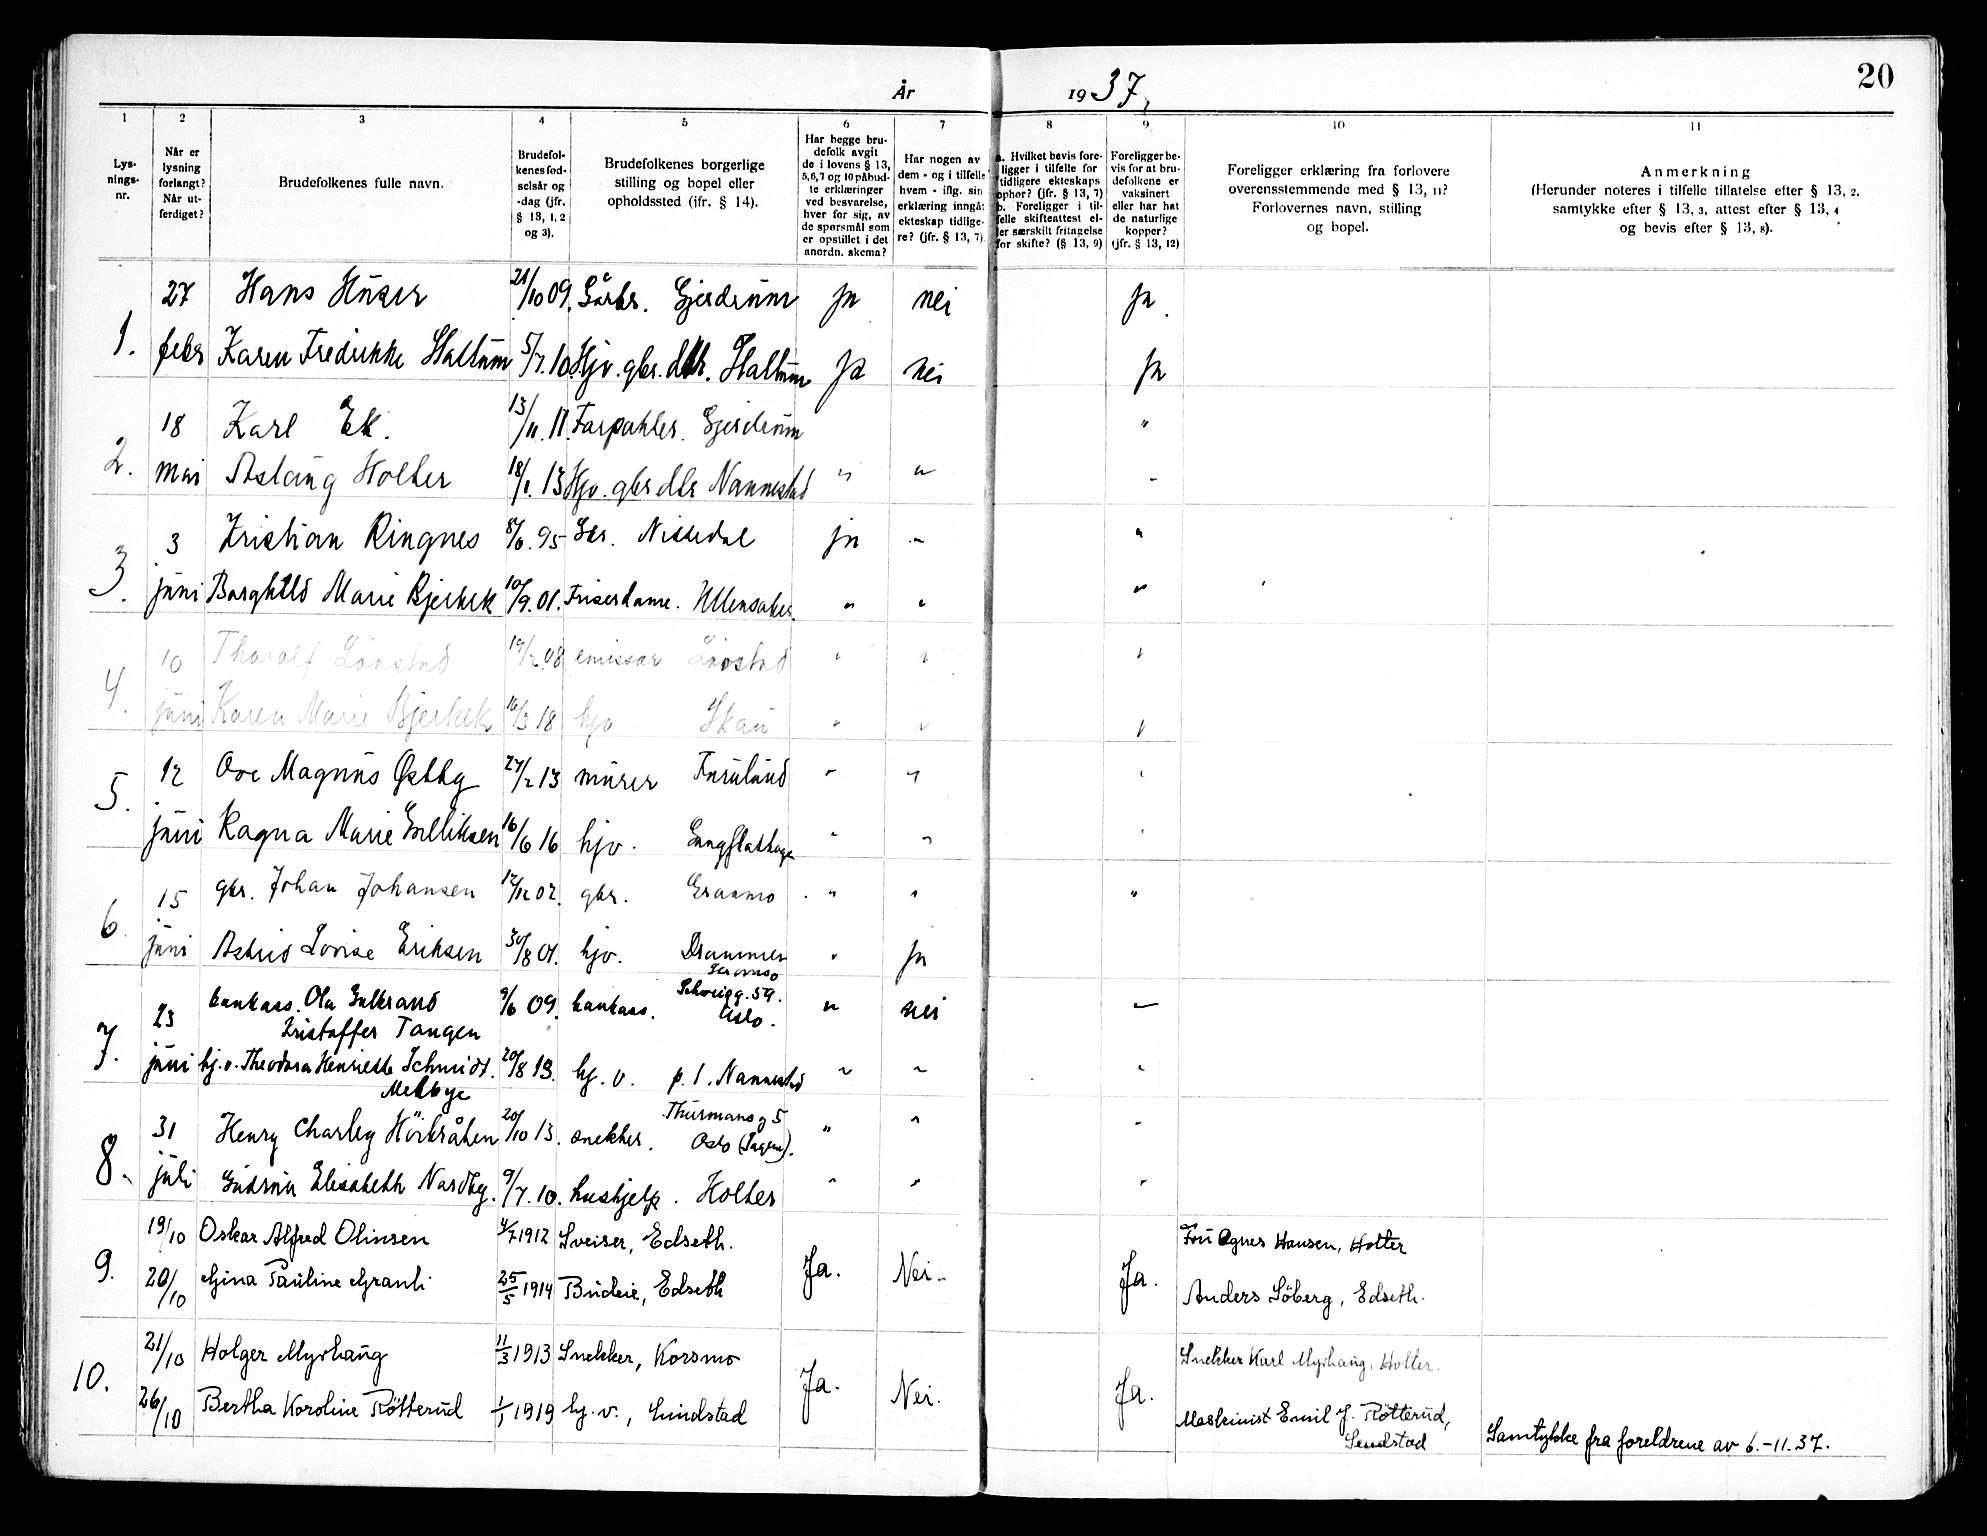 20
År 1937.
1
2
3
4
5
6
7
8
9
10
11
Lys-
nings-
nr.
Når er
lysning
forlangt?
Når ut-
ferdiget?
Brudefolkenes fulle navn.
Brudefol-
kenes fød-
selsår og
-dag (jfr.
§ 13, 1, 2
og 3).
Brudefolkenes borgerlige
stilling og bopel eller
opholdssted (jfr. § 14).
Har begge bru-
defolk avgit
de i lovens § 13,
5, 6, 7 og 10 påbud-
te erklæringer
ved besvarelse,
hver for sig, av
de spørsmål som
er opstillet i det
anordn. skema?
Har nogen av
dem - og i tilfelle
hvem - iflg. sin
erklæring inngåt
ekteskap tidlige-
re? (jfr. § 13, 7).
a. Hvilket bevis fore-
ligger i tilfelle for
tidligere ekteskaps
ophør? (jfr. § 13, 7)
b. Foreligger i til-
felle skifteattest el-
ler særskilt fritagelse
for skifte? (§ 13, 9)
Foreligger be-
vis for at bru-
defolkene er
vaksinert
eller har hat
de naturlige
kopper?
(jfr. § 13, 12)
Foreligger erklæring fra forlovere
overensstemmende med § 13, 11?
Forlovernes navn, stilling
og bopel.
Anmerkning
(Herunder noteres i tilfelle tillatelse efter § 13, 2,
samtykke efter § 13, 3, attest efter § 13, 4
og bevis efter § 13, 8).
1. 27 Hans Huser 21/10 09. Gårbr. Gjerdrum ja nei ja.
febr Karen Fredrikke Hallum 5/7. 10 Hjv. gbr. dtr. Hallum ja nei ja
2. 18 Karl Ek. 13/11. 11. Gjerdrum "
mai Aslaug Holter 18/1. 13 Hjv. gbr dtr Nannestad " " "
3. 3 Kristian Ringnes 8/6. 95 Gbr. Nittedal ja " "
juni Borghild Marie Bjerkek 10/9. 01. Friserdame. Ullensaker. " " "
4. 10 Tharalf Lönstad 19/2 08 emissær " " "
juni Karen Marie Bjerkek 16/3 18 hjv Skau " " "
5. 12 Ove Magnus Østby 27/2 13 murer Furulund " " "
juni Ragna Marie Gulliksen 16/6 16 hjv. " " "
6. 15 gbr. Johan Johansen 12/12 02. gbr. Granmo " " "
juni Astrid Lovise Eriksen 30/8 01. hjv. Drammen " ja
7. 23 kontass. Ola Gulbrand 9/6 09. kontass. Schweigg. 59. " nei "
Kristoffer Tangen Oslo.
juni hj. v. Theodora Henriette Schmidt. 20/8 13. hj. v. p. t. Nannestad " " "
Melbye
8. 31 Henry Charley Hörkråken 20/10 13. snekker. Thurmansg 5 " " "
Oslo (Sagene).
juli Gudrun Elisabeth Nordby. 9/7. 10. hushjelp. Holter " " "
9. 19/10 Oskar Alfred Olinsen 4/7 1912 Sveiser, Edseth. Ja. Nei. Ja. Fru Agnes Hansen, Holter
20/10 Gina Pauline Granli 25/5 1914 Budeie, Edseth Anders Söberg, Edseth.
10. 21/10 Holger Myrhaug 11/3 1913 Snekker, Korsmo Ja. Nei. Ja. Snekker Karl Myrhaug, Holter.
26/10 Bertha Karoline Rötterud 1/1 1919 hj. v., Lindstad Maskinist Emil J. Rötterud,
Lindstad
Samtykke fra foreldrene av 6.-11.37.